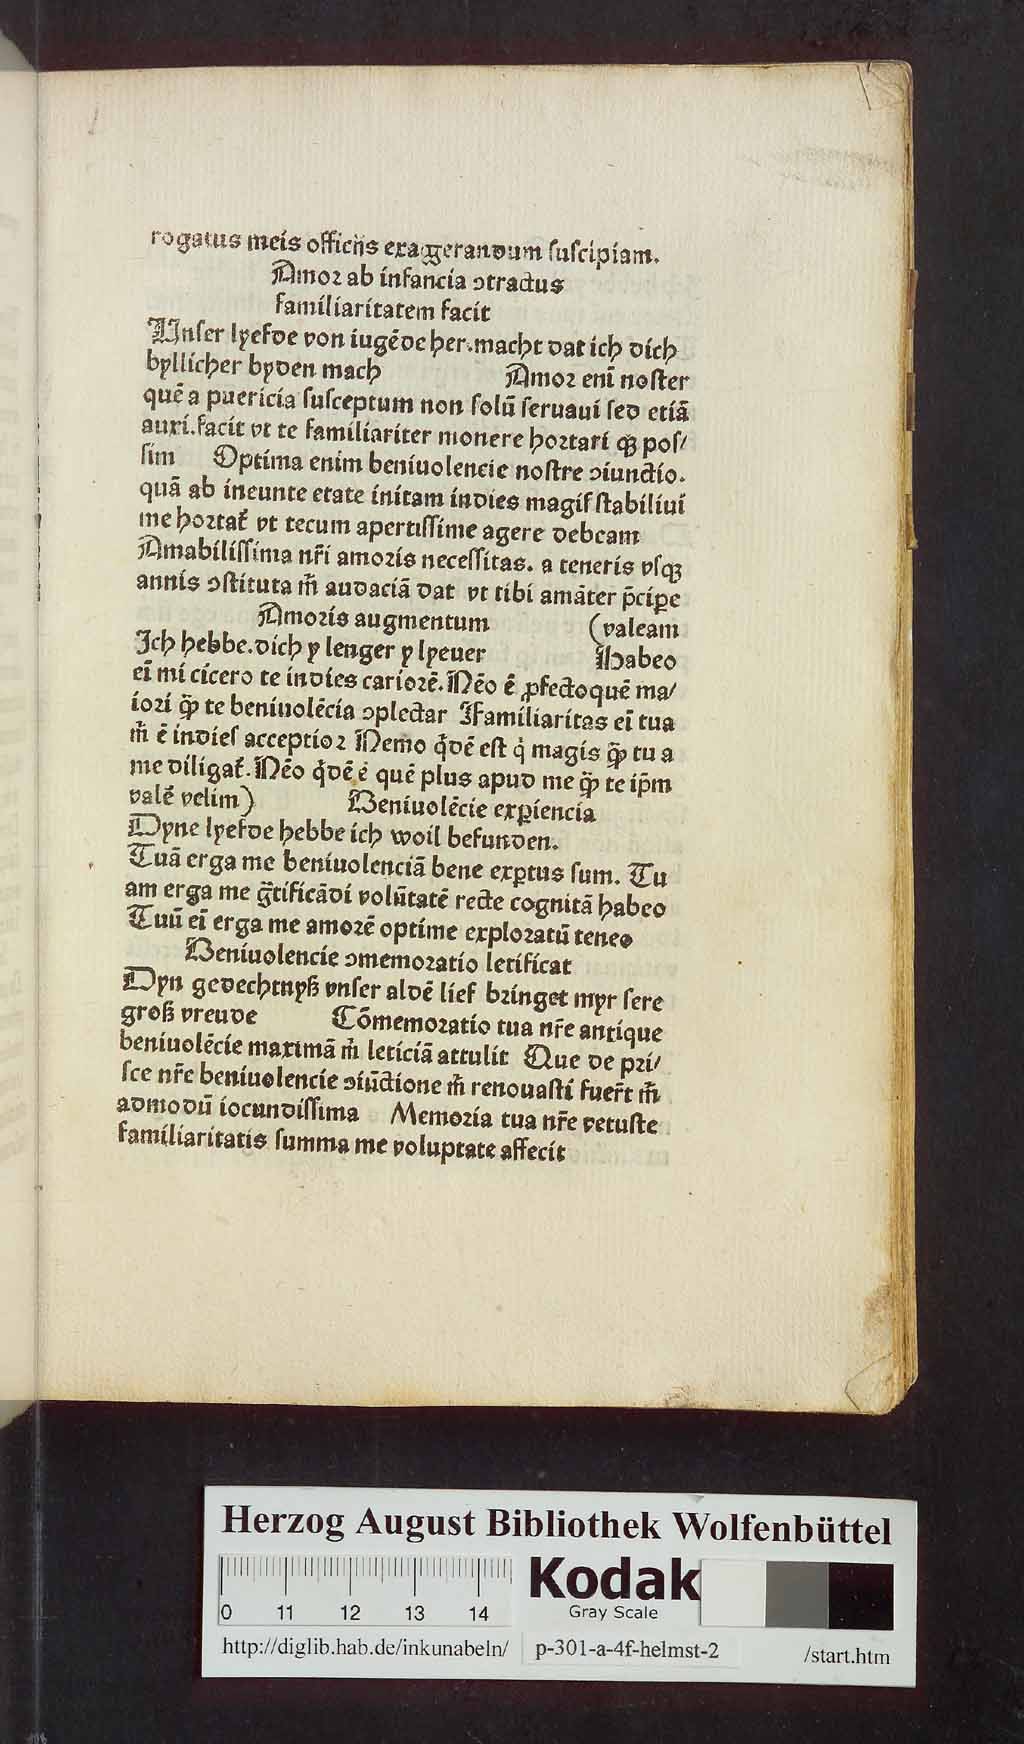 rogatus meis officiis exaggerandum suscipiam.
Amor ab infancia ↄtractus
familiaritatem facit
Unser lyefde von iugēde her.macht dat ich dich
byllicher byden mach Amor enī noster
quē a puericia susceptum non solū seruaui sed etiā
auxi.facit vt te familiariter monere hortari qꝫ pos/
sim Optima enim beniuolencie nostre ↄiunctio.
quā ab ineunte etate initam indies magis stabiliui
me hortat᷑ vt tecum apertissime agere debeam
Amabilissima nr̄i amoris necessitas. a teneris vsqꝫ
annis ↄstituta m̄ audaciā dat vt tibi amāter p̄cipe
Amoris augmentum (valeam
Ich hebbe.dich y lenger y lyeuer Habeo
eī mi cicero te indies cariorē. Nēo ē ꝓfecto quē ma/
iori qꝫ̄ te beniuolēcia ↄplectar Familiaritas eī tua
m̄ ē indies acceptior Nemo qͥdē est qͥ magis qꝫ̄ tu a
me diligat᷑. Nēo qͥdē ē quē plus apud me qꝫ̄ te ip̄m
valē velim) Beniuolēcie exꝑiencia
Dyne lyefde hebbe ich woil befunden.
Tuā erga me beniuolenciā bene exꝑtus sum. Tu
am erga me gᷓtificādi volūtatē recte cognitā habeo
Tuū eī erga me amorē optime exploratū teneo
Beniuolencie ↄmemoratio letificat
Dyn gedechtnyß vnser aldē lief bringet myr sere
groß vreude Cōmemoratio tua nr̄e antique
beniuolēcie maximā m̄ leticiā attulit Que de pri/
sce nr̄e beniuolencie ↄiūctione m̄ renouasti fuer̄t m̄
admodū iocundissima Memoria tua nr̄e vetuste
familiaritatis summa me voluptate affecit
Herzog August Bibliothek Wolfenbüttel
0 11 12 13 14
Kodak
Gray Scale
http://diglib.hab.de/inkunabeln/ p-301-a-4f-helmst-2 /start.htm